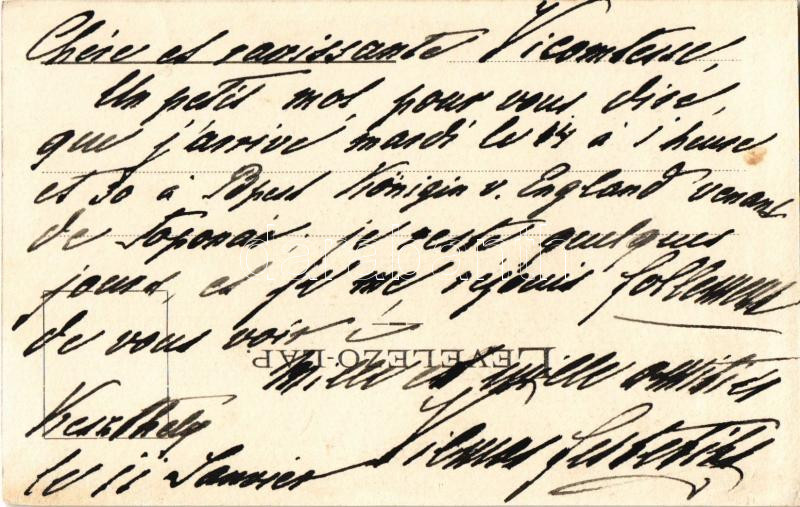 Chère et ravissante Vicomtesse,
Un petit mot pour vous dire,
que j'arrive mardi le 14 à 1 heure
et 30 à Bpest Königin v. England venant
de Toponár; je reste quelques
jours et je me réjouis follement
de vous voir
LEVELEZŐ-LAP.
Mille et mille amitiés
Keszthely
le 11 Janvier
Vilmos Festetics
darabanth